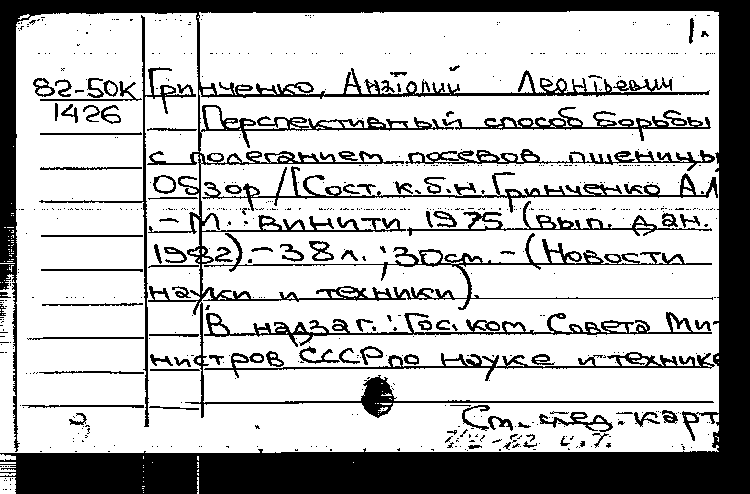 1.
82-50К Гринченко, Анатолий Леонтьевич
1426 Перспективный способ борьбы
с полеганием посевов пшеницы
Обзор / [Сост. к.б.н. Гринченко А.Л
.- М. : ВИНИТИ, 1975 (вып. дан.
1982).- 38 л. ; 30 см. - (Новости
науки и техники).
В надзаг. : Гос. ком. Совета Ми-
нистров СССР по науке и технике
См. след. карт.